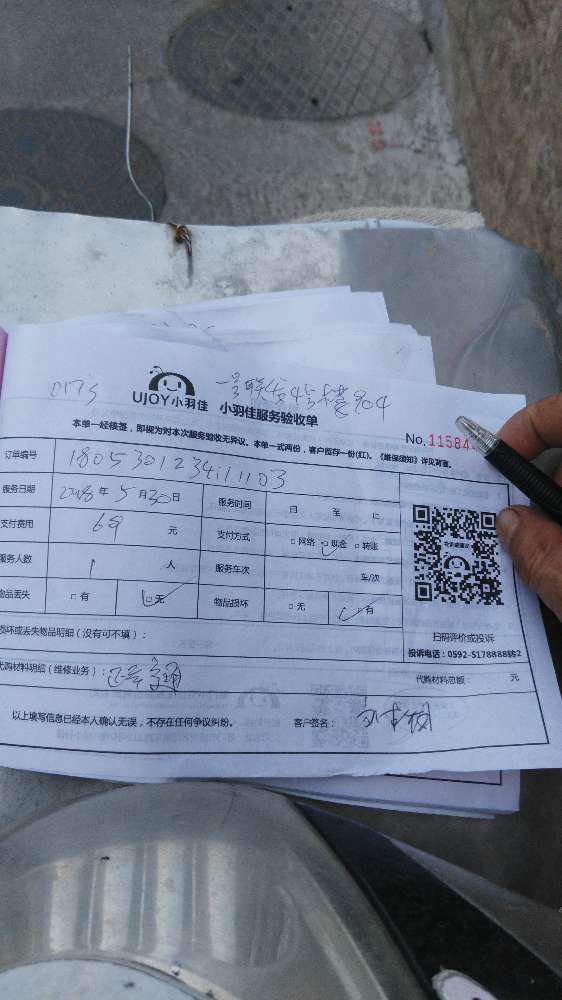 UJOY小羽佳 小羽佳服务验收单
No. 11584
本单一经核签，即视为对本次服务验收无异议。本单一式两份，客户留存一份(红)。《维保须知》详见背面。
订单编号
服务日期 2018年5月30日 服务时间 日 至 日
支付费用 69 元 支付方式 □网络 □现金 □转账
服务人数 1 人 服务车次 车/次
物品丢失 □有 □无 物品损坏 □无 □有
扫码评价或投诉
投诉电话：0592-5178888
损坏或丢失物品明细（没有可不填）：
代购材料明细（维修业务）： 代购材料总额： 元
以上填写信息已经本人确认无误，不存在任何争议纠纷。 客户签名：